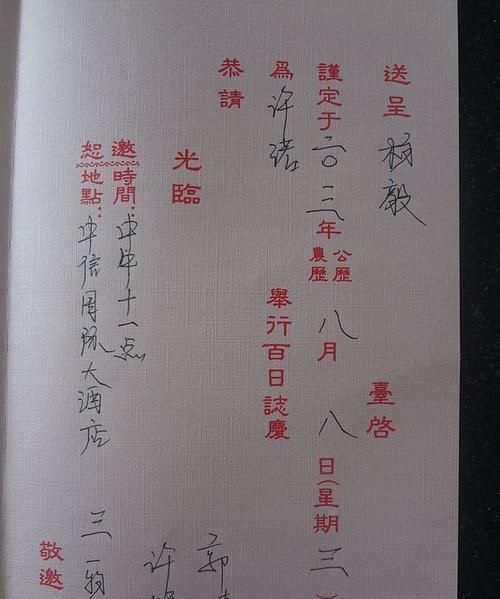 送呈 杨毅 臺啓
謹定于二〇一二年 公歷 農歷 八月八日(星期三)
爲许诺 舉行百日誌慶
恭請
光臨
郭
许
邀時間:中午十一点
恕地點:中信国际大酒店 三
敬邀